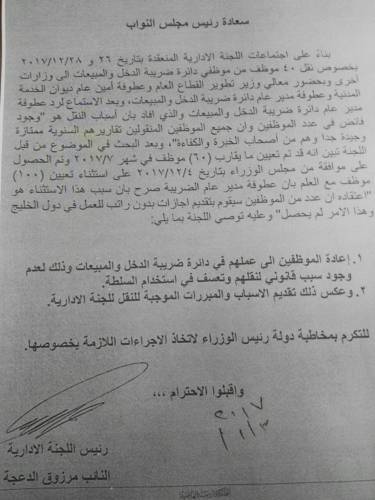 سعادة رئيس مجلس النواب
بناءً على اجتماعات اللجنة الادارية المنعقدة بتاريخ ٢٦ و ٢٠١٧/١٢/٢٨
بخصوص نقل ٤٠ موظف من موظفي دائرة ضريبة الدخل والمبيعات الى وزارات
أخرى وبحضور معالي وزير تطوير القطاع العام وعطوفة أمين عام ديوان الخدمة
المدنية وعطوفة مدير عام دائرة ضريبة الدخل والمبيعات، وبعد الاستماع لرد عطوفة
مدير عام دائرة ضريبة الدخل والمبيعات والذي افاد بان أسباب النقل هو "وجود
فائض في عدد الموظفين وان جميع الموظفين المنقولين تقاريرهم السنوية ممتازة
وجيدة جدا وهم من أصحاب الخبرة والكفاءة"، وبعد البحث في الموضوع من قبل
اللجنة تبين انه قد تم تعيين ما يقارب (٦٠) موظف في شهر ٢٠١٧/٧ وتم الحصول
على موافقة من مجلس الوزراء بتاريخ ٢٠١٧/١٢/٤ على استثناء تعيين (١٠٠)
موظف مع العلم بان عطوفة مدير عام الضريبة صرح بان سبب هذا الاستثناء هو
"اعتقاده ان عدد من الموظفين سيقوم بتقديم اجازات بدون راتب للعمل في دول الخليج
وهذا الامر لم يحصل" وعليه توصي اللجنة بما يلي:
١. إعادة الموظفين الى عملهم في دائرة ضريبة الدخل والمبيعات وذلك لعدم
وجود سبب قانوني لنقلهم وتعسف في استخدام السلطة.
٢. وعكس ذلك تقديم الاسباب والمبررات الموجبة للنقل للجنة الادارية.
للتكرم بمخاطبة دولة رئيس الوزراء لاتخاذ الاجراءات اللازمة بخصوصها.
واقبلوا الاحترام ،،،
٢٠١٧
رئيس اللجنة الادارية
النائب مرزوق الدعجة